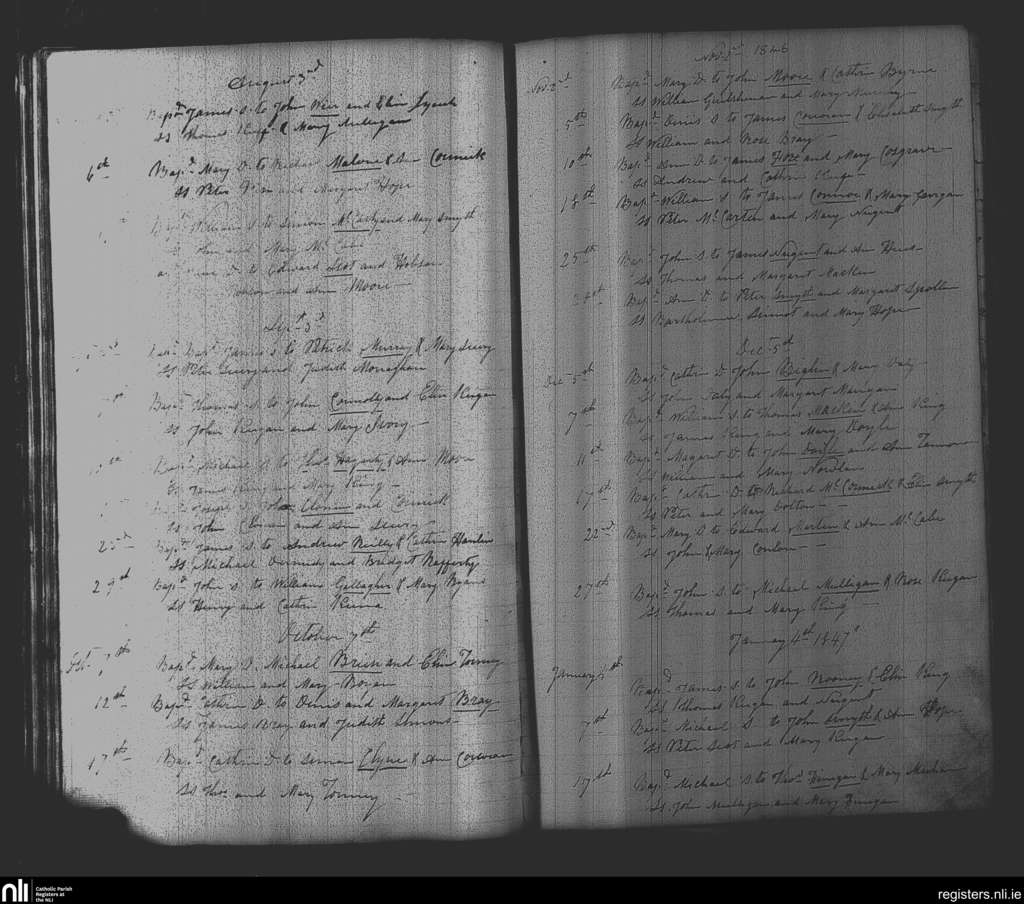 August 3rd
Bapd James S. to John Weir and Elin Lynch
Ss Thomas King & Mary Mulligan
6th Bapd Mary D. to Michael Malone & Ann Cormick
Ss Peter and Margaret Hope
Bapd William S. to Simon McCarty and Mary Smyth
Ss John and Mary McCabe
D. to Edward Scot and
and Ann Moore
Sept 3d
Bapd James S. to Patrick Murray & Mary Leery
Ss Peter Leery and Judith Monaghan
Bapd Thomas S. to John Connolly and Elin Keegan
Ss John Keegan and Mary Ivory
Bapd Michael S. to Thos Hagerty & Ann Moore
Ss James King and Mary King
Joseph S. John Clonan and Cormick
Ss John Clonan and Ann Leavy
23d Bapd James S. to Andrew Reilly & Cathrin Hanlin
Ss Michael Dermody and Bridget Rafferty
29th Bapd John S. to William Gallagher & Mary Byrne
Ss Henry and Cathrin Kiernan
October 7th
7th Bapd Mary D. Michael Brien and Elin Tormey
Ss William and Mary Bryan
12th Bapd Cathrin D. to Dennis and Margaret Bray
Ss James Bray and Judith Simons
17th Bapd Cathrin D. to Simon Clyne & Ann Corcoran
Ss Thos and Mary Tormey
Nov 2d 1846
Nov. 2d Bapd Mary D. to John Moore & Cathrin Byrne
Ss William and Mary Nunney
5th Bapd Denis S. to James Corcoran & Elizabeth Smyth
Ss William and Rose Bray
10th Bapd Ann D. to James Fox and Mary Cosgrave
Ss Andrew and Cathrin King
18th Bapd William S. to James Connor & Mary Gavigan
Ss Peter McCarter and Mary Nugent
25th Bapd John S. to James Nugent and Ann
Ss Thomas and Margaret Macken
Bapd Ann D. to Peter Smyth and Margaret Spollen
Ss Bartholomew Sinnot and Mary Hope
Dec 5th
Dec 5th Bapd Cathrin D. John Beglen & Mary Daly
Ss John Daly and Margaret
7th Bapd William S. to Thomas Macken & Ann King
Ss James King and Mary Doyle
11th Bapd Margaret D. to John Doyle and Ann
Ss William and Mary Nowlan
17th Bapd Cathrin D. to Richard McCormick & Elin Smyth
Ss Peter and Mary Dolton
22nd Bapd Mary D. to Edward Martin & Ann McCabe
Ss John & Mary Conlon
27th Bapd John S. to Michael Mulligan & Rose Keegan
Ss Thomas and Mary King
January 4th 1847
January 4th Bapd James S. to John Rooney & Elin King
Ss Thomas Keegan and Nugent
7th Bapd Michael S. to John Smyth & Ann Hope
Ss Peter Scot and Mary Keegan
17th Bapd Michael S. to Thos Finegan & Mary Meehan
Ss John Mulligan and Mary Finegan
nli
Catholic Parish
Registers at
the NLI
registers.nli.ie